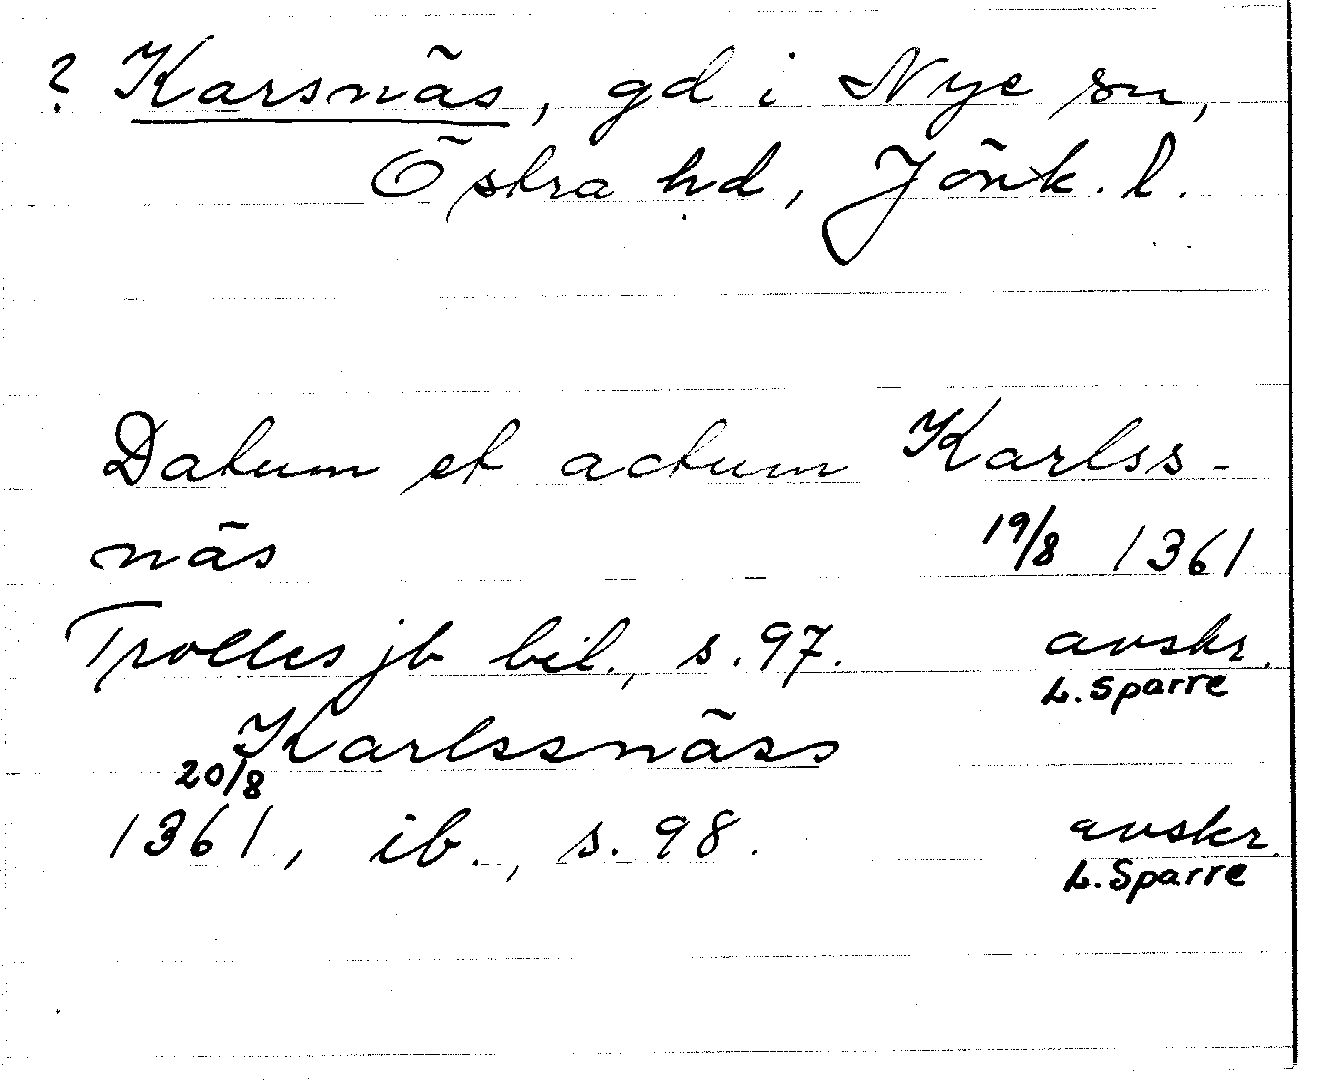 ? Karsnäs, gd i Nye sn,
Östra hd, Jönk. l.
Datum et actum Karlss-
näs 19/8 1361
Trolles jb bil., s. 97. avskr.
L. Sparre
Karlssnäss
20/8
1361, ib., s. 98. avskr.
L. Sparre